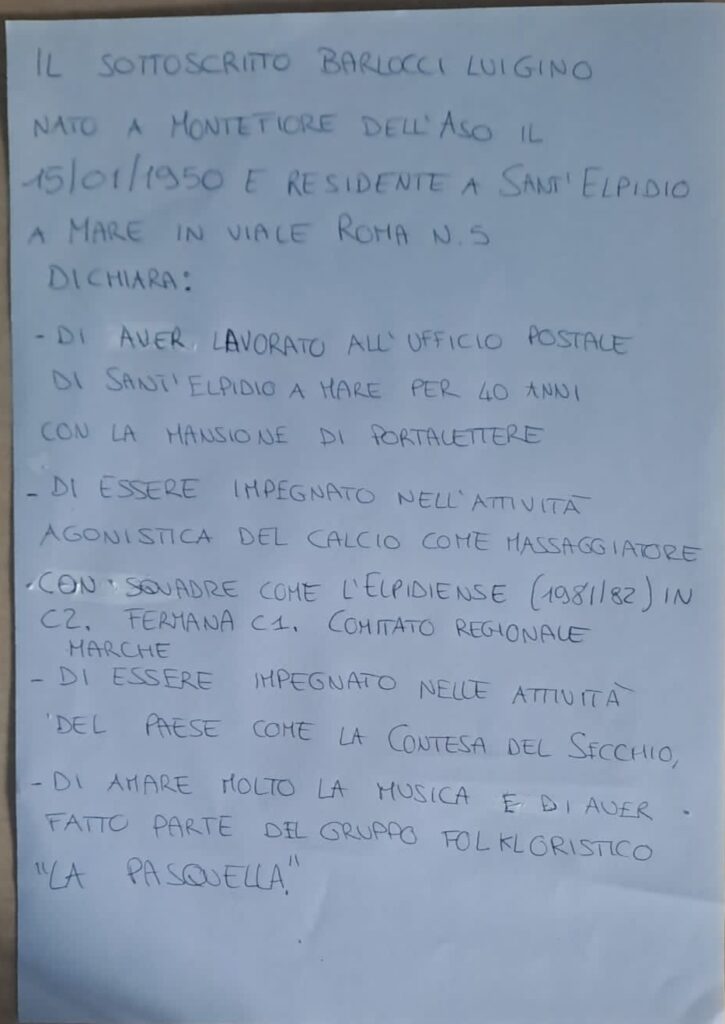 IL SOTTOSCRITTO BARLOCCI LUIGINO
NATO A MONTEFIORE DELL'ASO IL
15/01/1950 E RESIDENTE A SANT'ELPIDIO
A MARE IN VIALE ROMA N.5
DICHIARA:
- DI AVER LAVORATO ALL'UFFICIO POSTALE
DI SANT'ELPIDIO A MARE PER 40 ANNI
CON LA MANSIONE DI PORTALETTERE
- DI ESSERE IMPEGNATO NELL'ATTIVITÀ
AGONISTICA DEL CALCIO COME MASSAGGIATORE
CON SQUADRE COME L'ELPIDIENSE (1981/82) IN
C2. FERMANA C1. COMITATO REGIONALE
MARCHE
- DI ESSERE IMPEGNATO NELLE ATTIVITÀ
DEL PAESE COME LA CONTESA DEL SECCHIO,
- DI AMARE MOLTO LA MUSICA E DI AVER
FATTO PARTE DEL GRUPPO FOLKLORISTICO
"LA PASQUELLA."